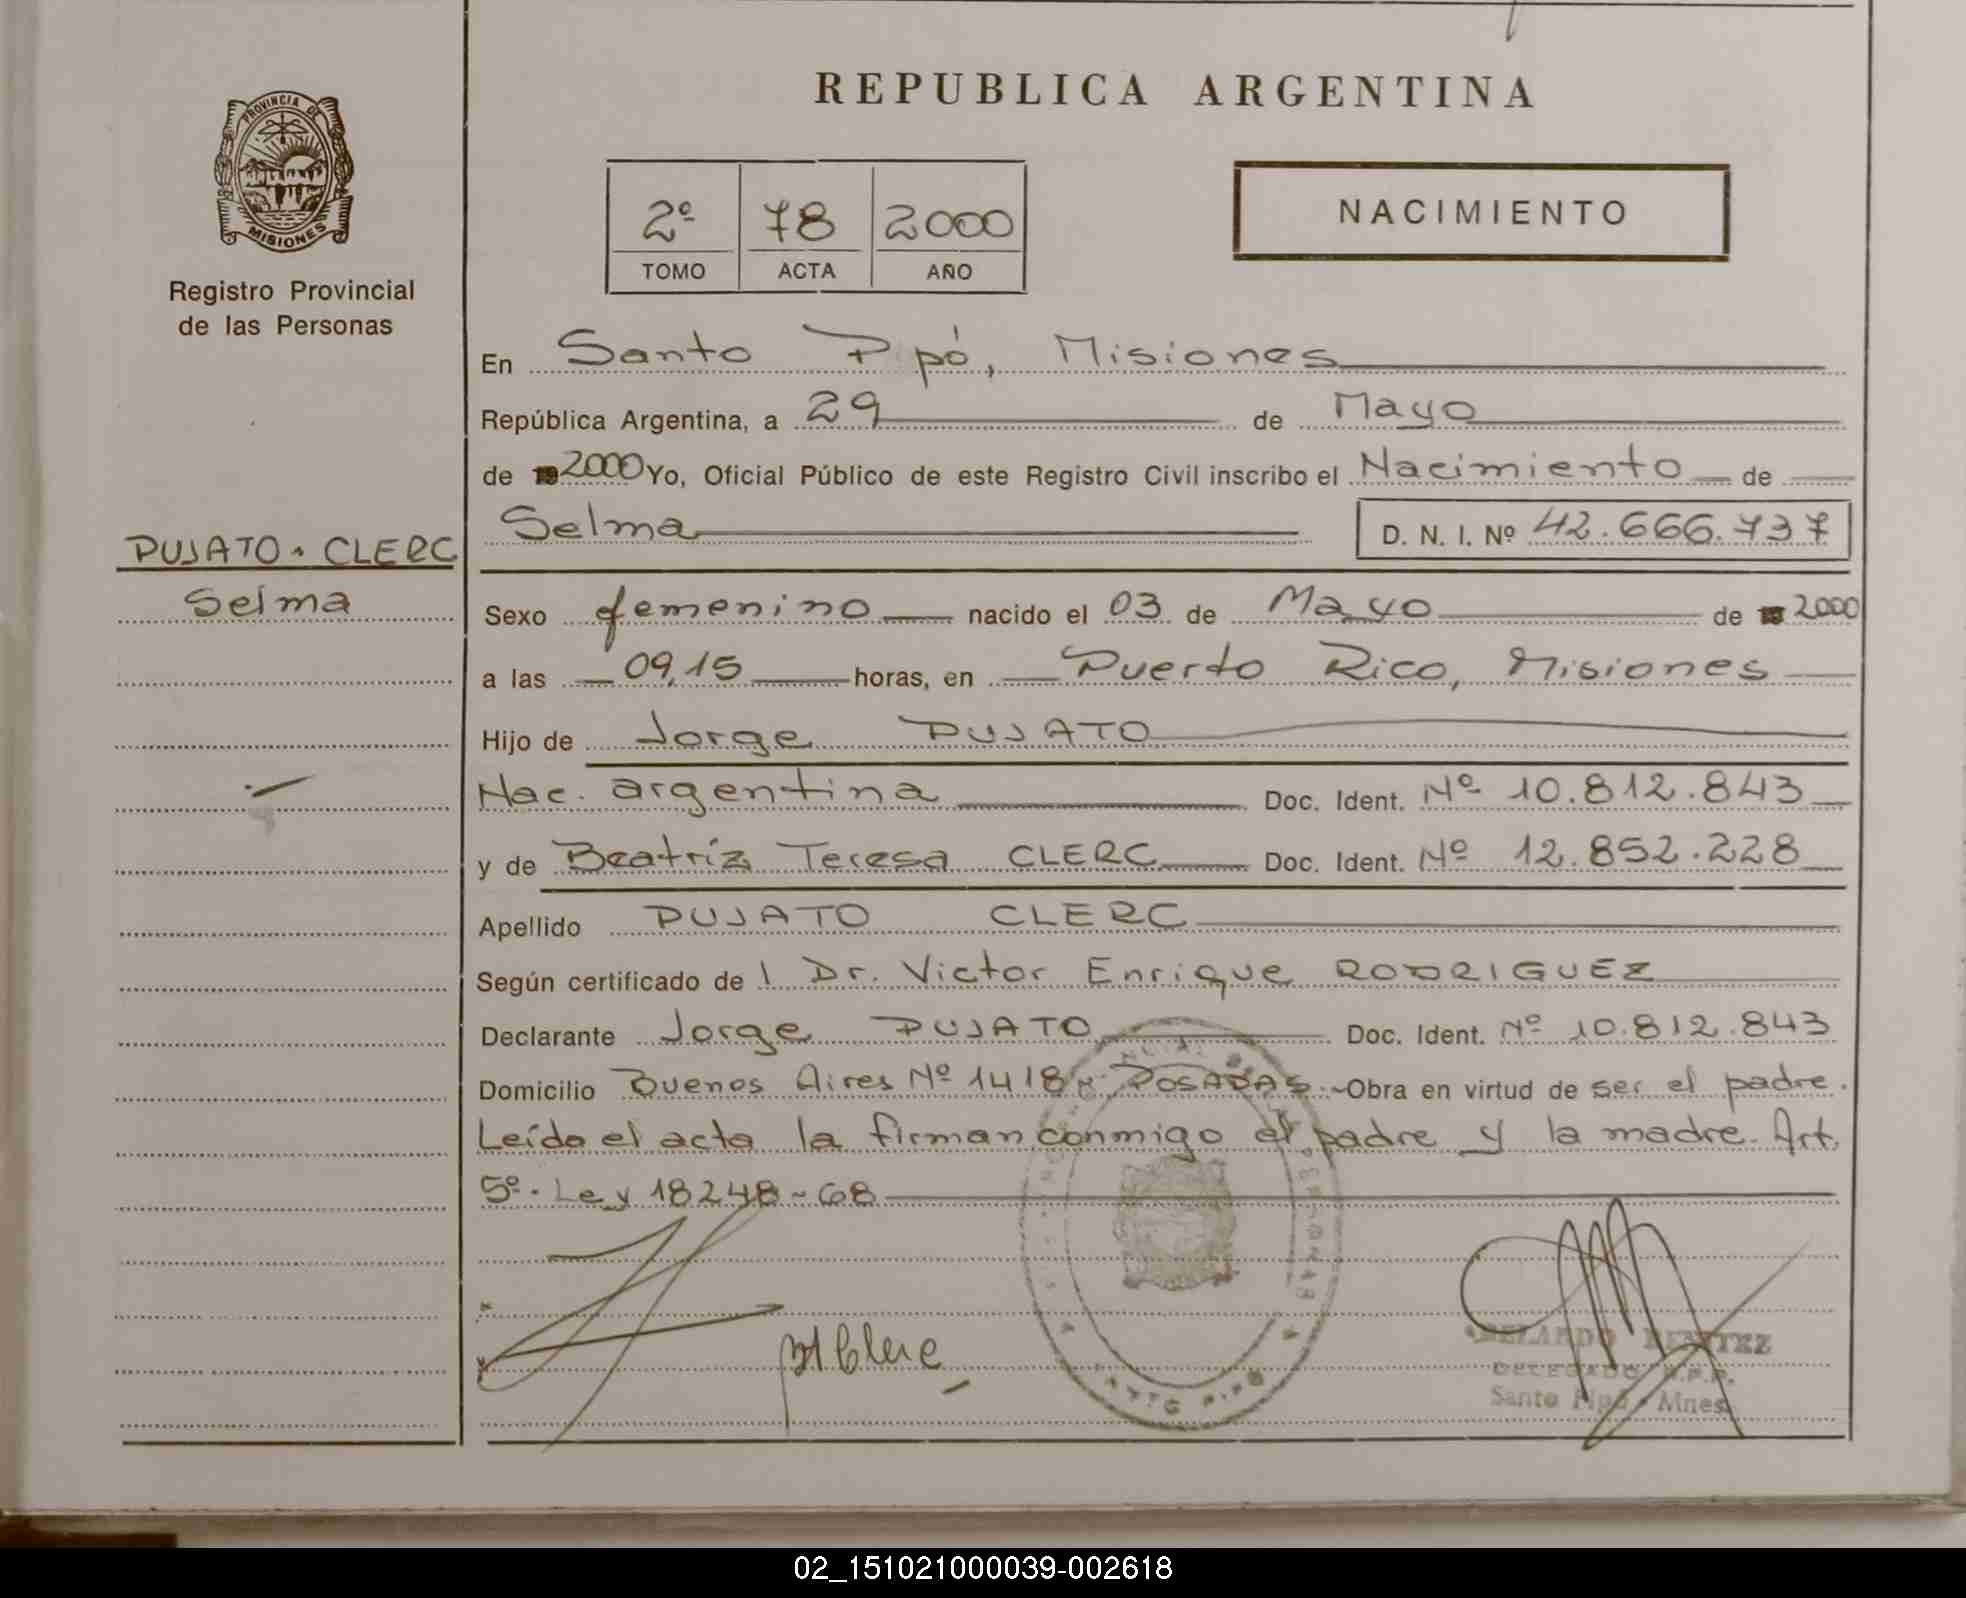 REPUBLICA ARGENTINA
PROVINCIA DE MISIONES
Registro Provincial
de las Personas
2º 78 2000
TOMO ACTA AÑO
NACIMIENTO
En Santo Pipó, Misiones
República Argentina, a 29 de Mayo
de 19 2000 Yo, Oficial Público de este Registro Civil inscribo el Nacimiento de
PUJATO - CLERC
Selma
Selma D. N. I. Nº 42.666.737
Sexo femenino nacido el 03 de Mayo de 19 2000
a las 09,15 horas, en Puerto Rico, Misiones
Hijo de Jorge PUJATO
Nac. argentina Doc. Ident. Nº 10.812.843
y de Beatríz Teresa CLERC Doc. Ident. Nº 12.852.228
Apellido PUJATO CLERC
Según certificado de l Dr. Victor Enrique RODRIGUEZ
Declarante Jorge PUJATO Doc. Ident. Nº 10.812.843
Domicilio Buenos Aires Nº 1418 - POSADAS.- Obra en virtud de ser el padre.
Leída el acta la firman conmigo el padre y la madre. Art.
5º. Ley 18248-68
Clerc
BENITEZ
DELEGADO R.P.P.
Santo Pipó - Mnes.
SANTO PIPO
02_151021000039-002618